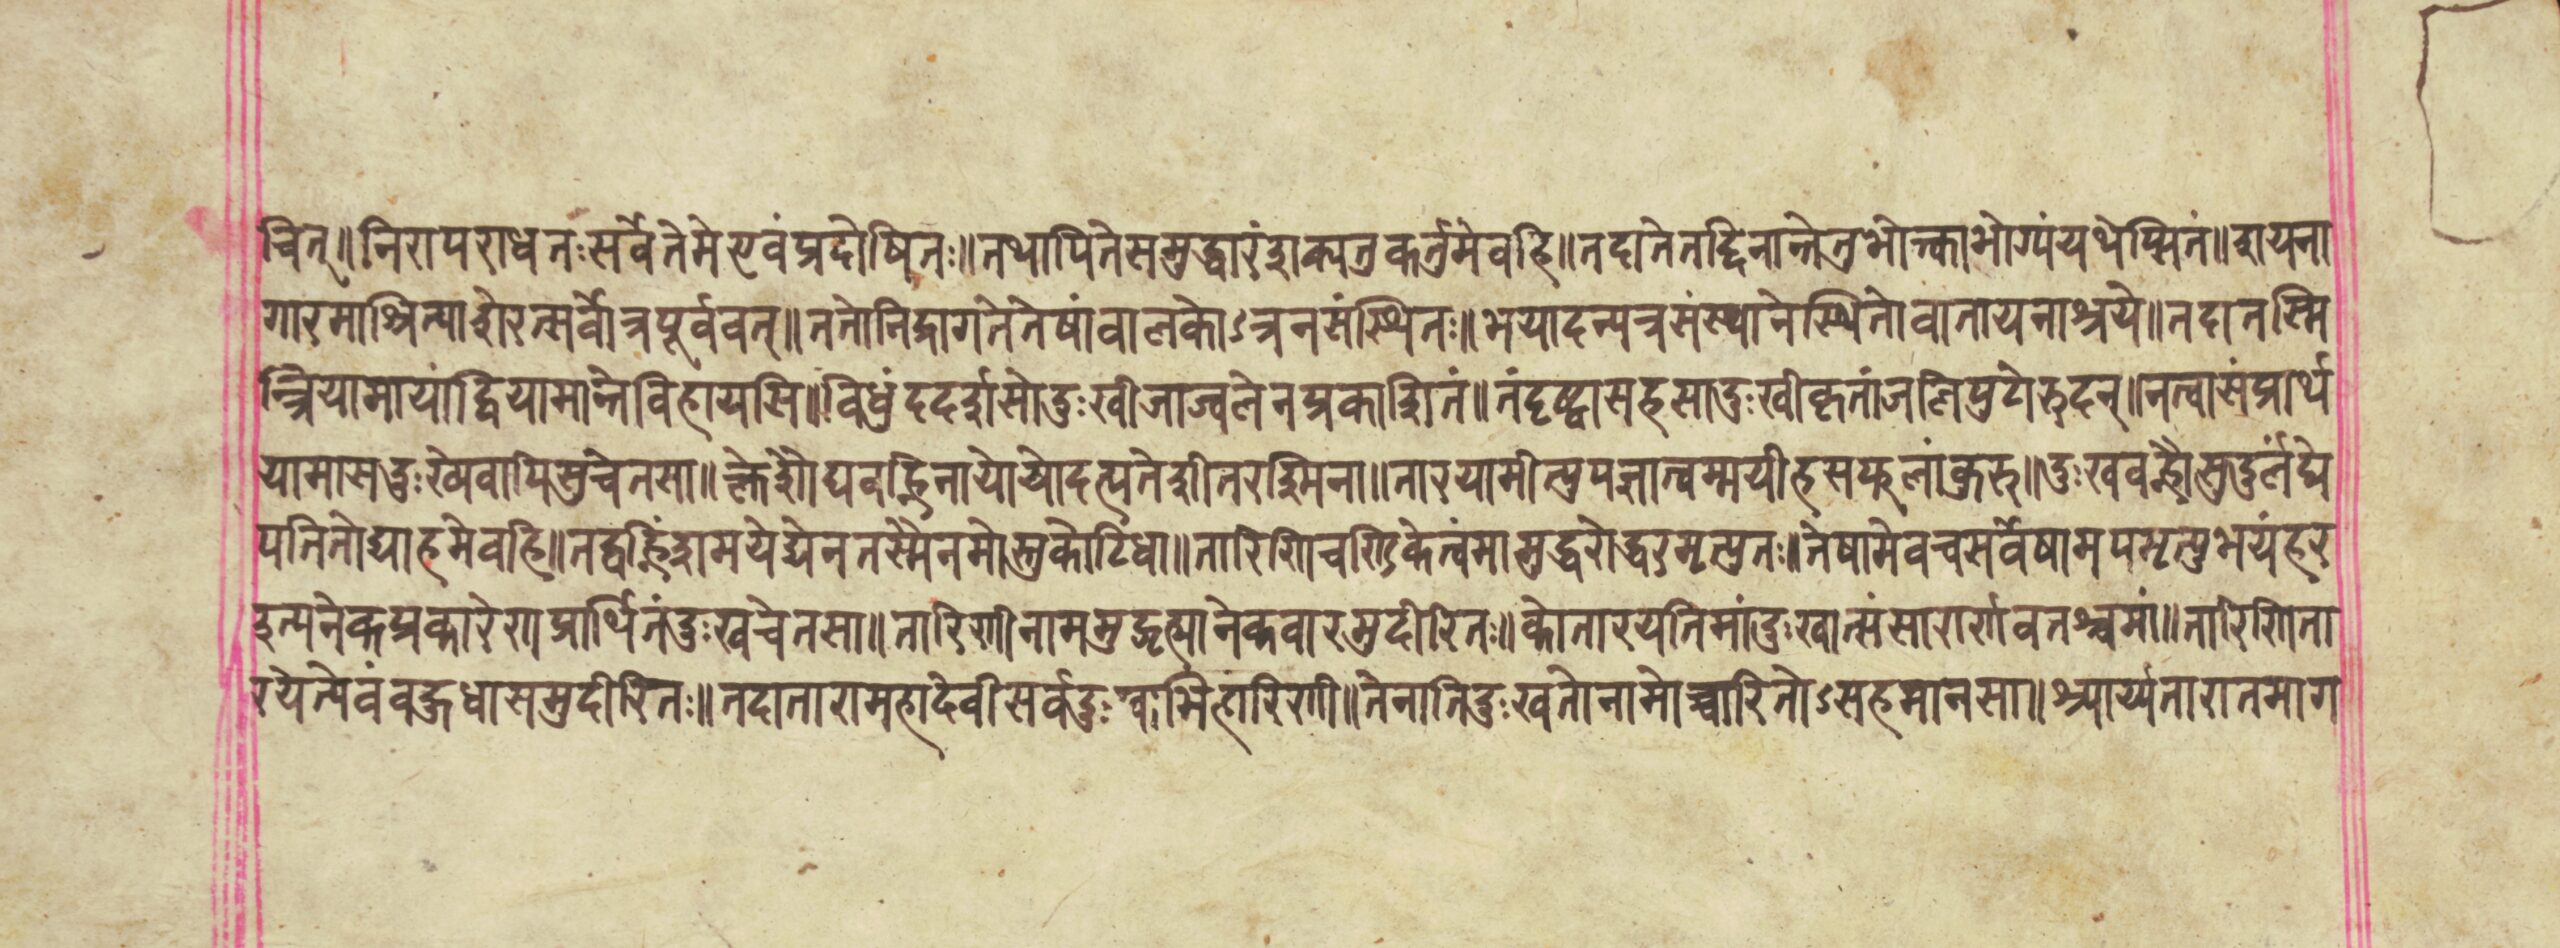 चित्॥निरापराधतःसर्वेतेमेध्वंप्रदोषितः॥तथापितेसमुद्धारंशक्यतुकर्तुमेवहि॥तदातेतद्दिनान्तेतुभोक्त्वाभोग्यंयथेप्सितं॥शयना
गारमाश्रित्याशेरत्सर्वोत्रपूर्ववत्॥ततोनिद्रागतेतेषांवालकोऽत्रनसंस्थितः॥भयादन्यत्रसंस्थानेस्थितोवातायनाश्रये॥तदातस्मि
न्त्रियामायांद्वियामान्तेविहायसि॥विधुंददर्शसोदुःखीजाज्वलेनप्रकाशितं॥तंदृष्ट्वासहसादुःखीकृतांजलिपुटोरुदन्॥नत्वासंप्रार्थ
यामासदुःखेवापिसुचेतसा॥क्लेशौद्यवह्निनायोयोदत्यतेशीतरश्मिना॥तारयामीत्युपज्ञात्वम्मयीहसफलांकुरु॥दुःखवह्नौसुदुर्लंघे
पतितोद्याहमेवहि॥तद्वह्निंशमयेद्येनतस्मैनमोस्तुकोटिधा॥तारिणिचण्डिकेत्वंमामुद्धरोद्धरमृत्युतः॥तेषामेवचसर्वेषामपमृत्युभयंहर
इत्यनेकप्रकारेणप्रार्थितंदुःखचेतसा॥तारिणीनाममुद्धृत्यानेकवारमुदीरितः॥कोतारयतिमांदुःखात्संसारार्णवतश्चमां॥तारिणिता
रयेत्येवंवहुधासमुदीरितः॥तदातारामहादेवीसर्वदुःखाभिहारिणी॥तेनातिदुःखतोनामोच्चारितोऽसहमानसा॥श्यार्य्यतारातमाग